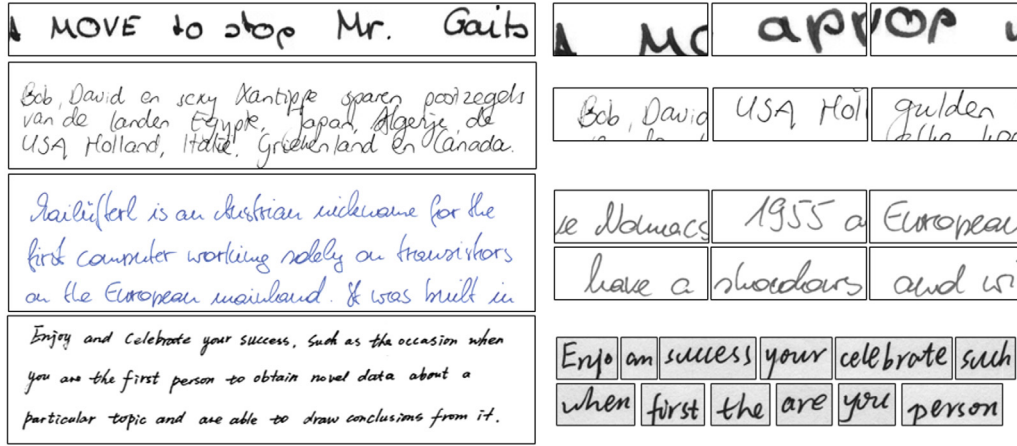 A MOVE to stop Mr. Gaits
Bob, David en sexy Xantippe sparen postzegels
van de landen Egypte, Japan, Algerije, de
USA Holland, Italië, Griekenland en Canada.
Mailüfterl is an Austrian nickname for the
first computer working solely on transistors
on the European mainland. It was built in
Enjoy and celebrate your success, such as the occasion when
you are the first person to obtain novel data about a
particular topic and are able to draw conclusions from it.
A MO app rop
Bob, David USA Hol gulden
ve Nomacs 1955 a European
have a shadows and wi
Enjo an success your celebrate such
when first the are you person